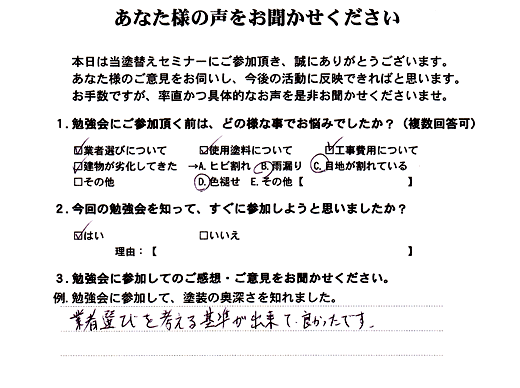 あなた様の声をお聞かせください
本日は当塗替えセミナーにご参加頂き、誠にありがとうございます。
あなた様のご意見をお伺いし、今後の活動に反映できればと思います。
お手数ですが、率直かつ具体的なお声を是非お聞かせくださいませ。
1．勉強会にご参加頂く前は、どの様な事でお悩みでしたか？（複数回答可）
☑業者選びについて ☑使用塗料について ☑工事費用について
☑建物が劣化してきた →A. ヒビ割れ B. 雨漏り C. 目地が割れている
□その他 D. 色褪せ E. その他【 】
2．今回の勉強会を知って、すぐに参加しようと思いましたか？
☑はい □いいえ
理由：【 】
3．勉強会に参加してのご感想・ご意見をお聞かせください。
例. 勉強会に参加して、塗装の奥深さを知れました。
業者選びを考える基準が出来て良かったです。